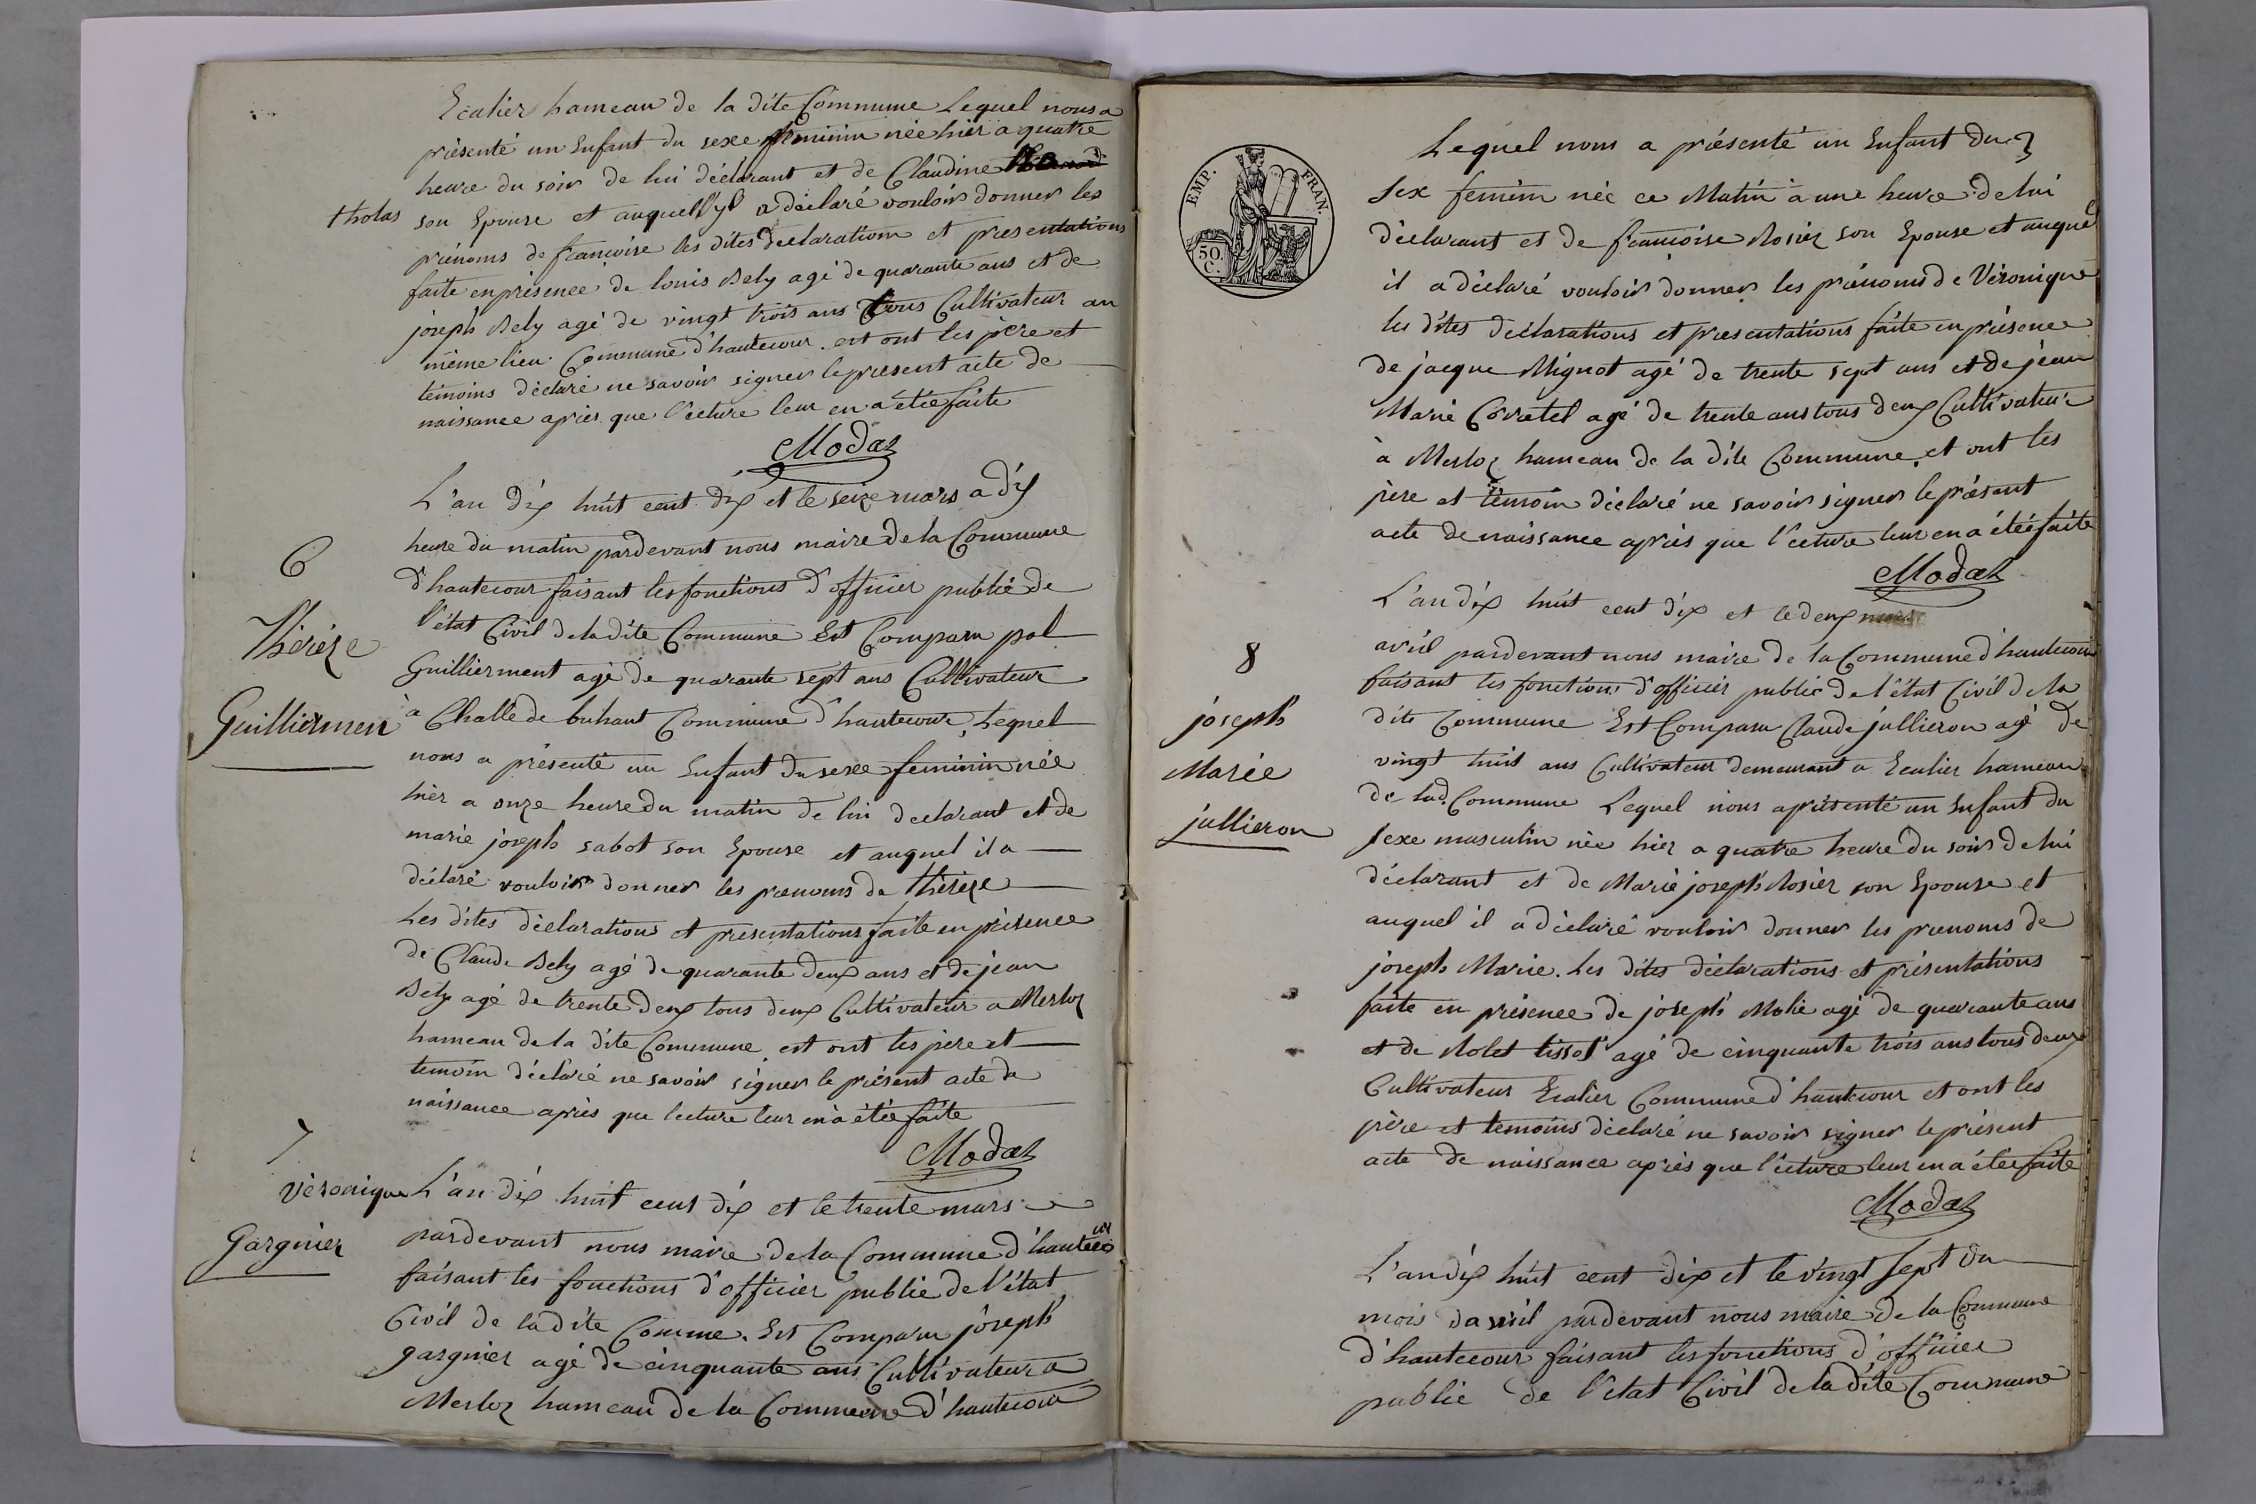 Ecalier hameau de la dite Commune Lequel nous a
présenté un Enfant du sexe feminin née hier a quatre
heure du soir de lui déclarant et de Claudine
tholas
son Epouse et auquell yl a déclaré vouloir donner les
prénoms de francoise les dites declaration et presentations
faite en présence de louis Bely agé de quarante ans et de
joseph Bely agé de vingt trois ans tous Cultivateur au
même lieu Commune d'hautecour. est ont les père et
témoins déclaré ne savoir signer le present acte de
naissance après que l'ecture leur en a étée faite
Modaz
6
Thérèze
Guilliermen
L'an dix huit cent dix et le seize mars a dix
heure du matin pardevant nous maire de la Commune
d'hautecour faisant les fonctions d'officier public de
l'état Civil de la dite Commune Est Comparu pol
Guillierment agé de quarante sept ans Cultivateur
à Challe de buhant Commune d'hautecour, Lequel
nous a présenté un Enfant du sexe feminin née
hièr a onze heure du matin de lui declarant et de
marie joseph sabot son Epouse et auquel il a
déclaré vouloir donner les prenoms de thérèze
Les dites déclarations et presentations faite en présence
de Claude Bely agé de quarante deux ans et de jean
Bely agé de trente deux tous deux Cultivateur a Merloz
hameau de la dite Commune est ont les père et
temoin déclaré ne savoir signer le présent acte de
naissance après que lecture leur en a étée faite
Modaz
7
Vèronique
Gargnier
L'an dix huit cent dix et le trente mars
pardevant nous maire de la Commune d'hautecour
faisant les fonctions d'officier public de l'état
Civil de la dite Comme. Est Comparu joseph
gargnier agé de cinquante ans Cultivateur a
Merloz hameau de la Commune d'hautecour
EMP. FRAN.
50. C.
Lequel nous a présenté un Enfant du
sex feminin née ce Matin à une heure de lui
déclarant et de francoise Rosiez son Epouse et auquel
il a déclaré vouloir donner les prénoms de Véronique
les dites déclarations et presentations faite en présence
de jacque Mignot agé de trente sept ans et de jean
Marie Covatel agé de trente ans tous deux Cultivateur
à Merloz hameau de la dite Commune, et ont les
père et témoin déclaré ne savoir signer le présent
acte de naissance après que l'ecture leur en a étée faite
Modaz
8
joseph
Marie
jullieron
L'an dix huit cent dix et le deux
avril pardevant nous maire de la Commune d'hautecour
faisant les fonctions d'officier public de l'état Civil de la
dite Commune Est Comparu Claude jullieron agé de
vingt huit ans Cultivateur demeurant a Ecalier hameau
de lad. Commune Lequel nous a présenté un Enfant du
sexe masculin née hier a quatre heure du soir de lui
déclarant et de Marie joseph Rosiez son Epouse et
auquel il a déclaré vouloir donner les prenoms de
joseph Marie. Les dites déclarations et présentations
faite en présence de joseph Molié agé de quarante ans
et de Rolet tissot agé de cinquante trois ans tous deux
Cultivateur Ecalier Commune d'hautecour et ont les
père et temoins déclaré ne savoir signer le présent
acte de naissance après que l'ecture leur en a étée faite
Modaz
L'an dix huit cent dix et le vingt sept du
mois d'avril pardevant nous maire de la Commune
d'hautecour faisant les fonctions d'officier
public de l'état Civil de la dite Commune